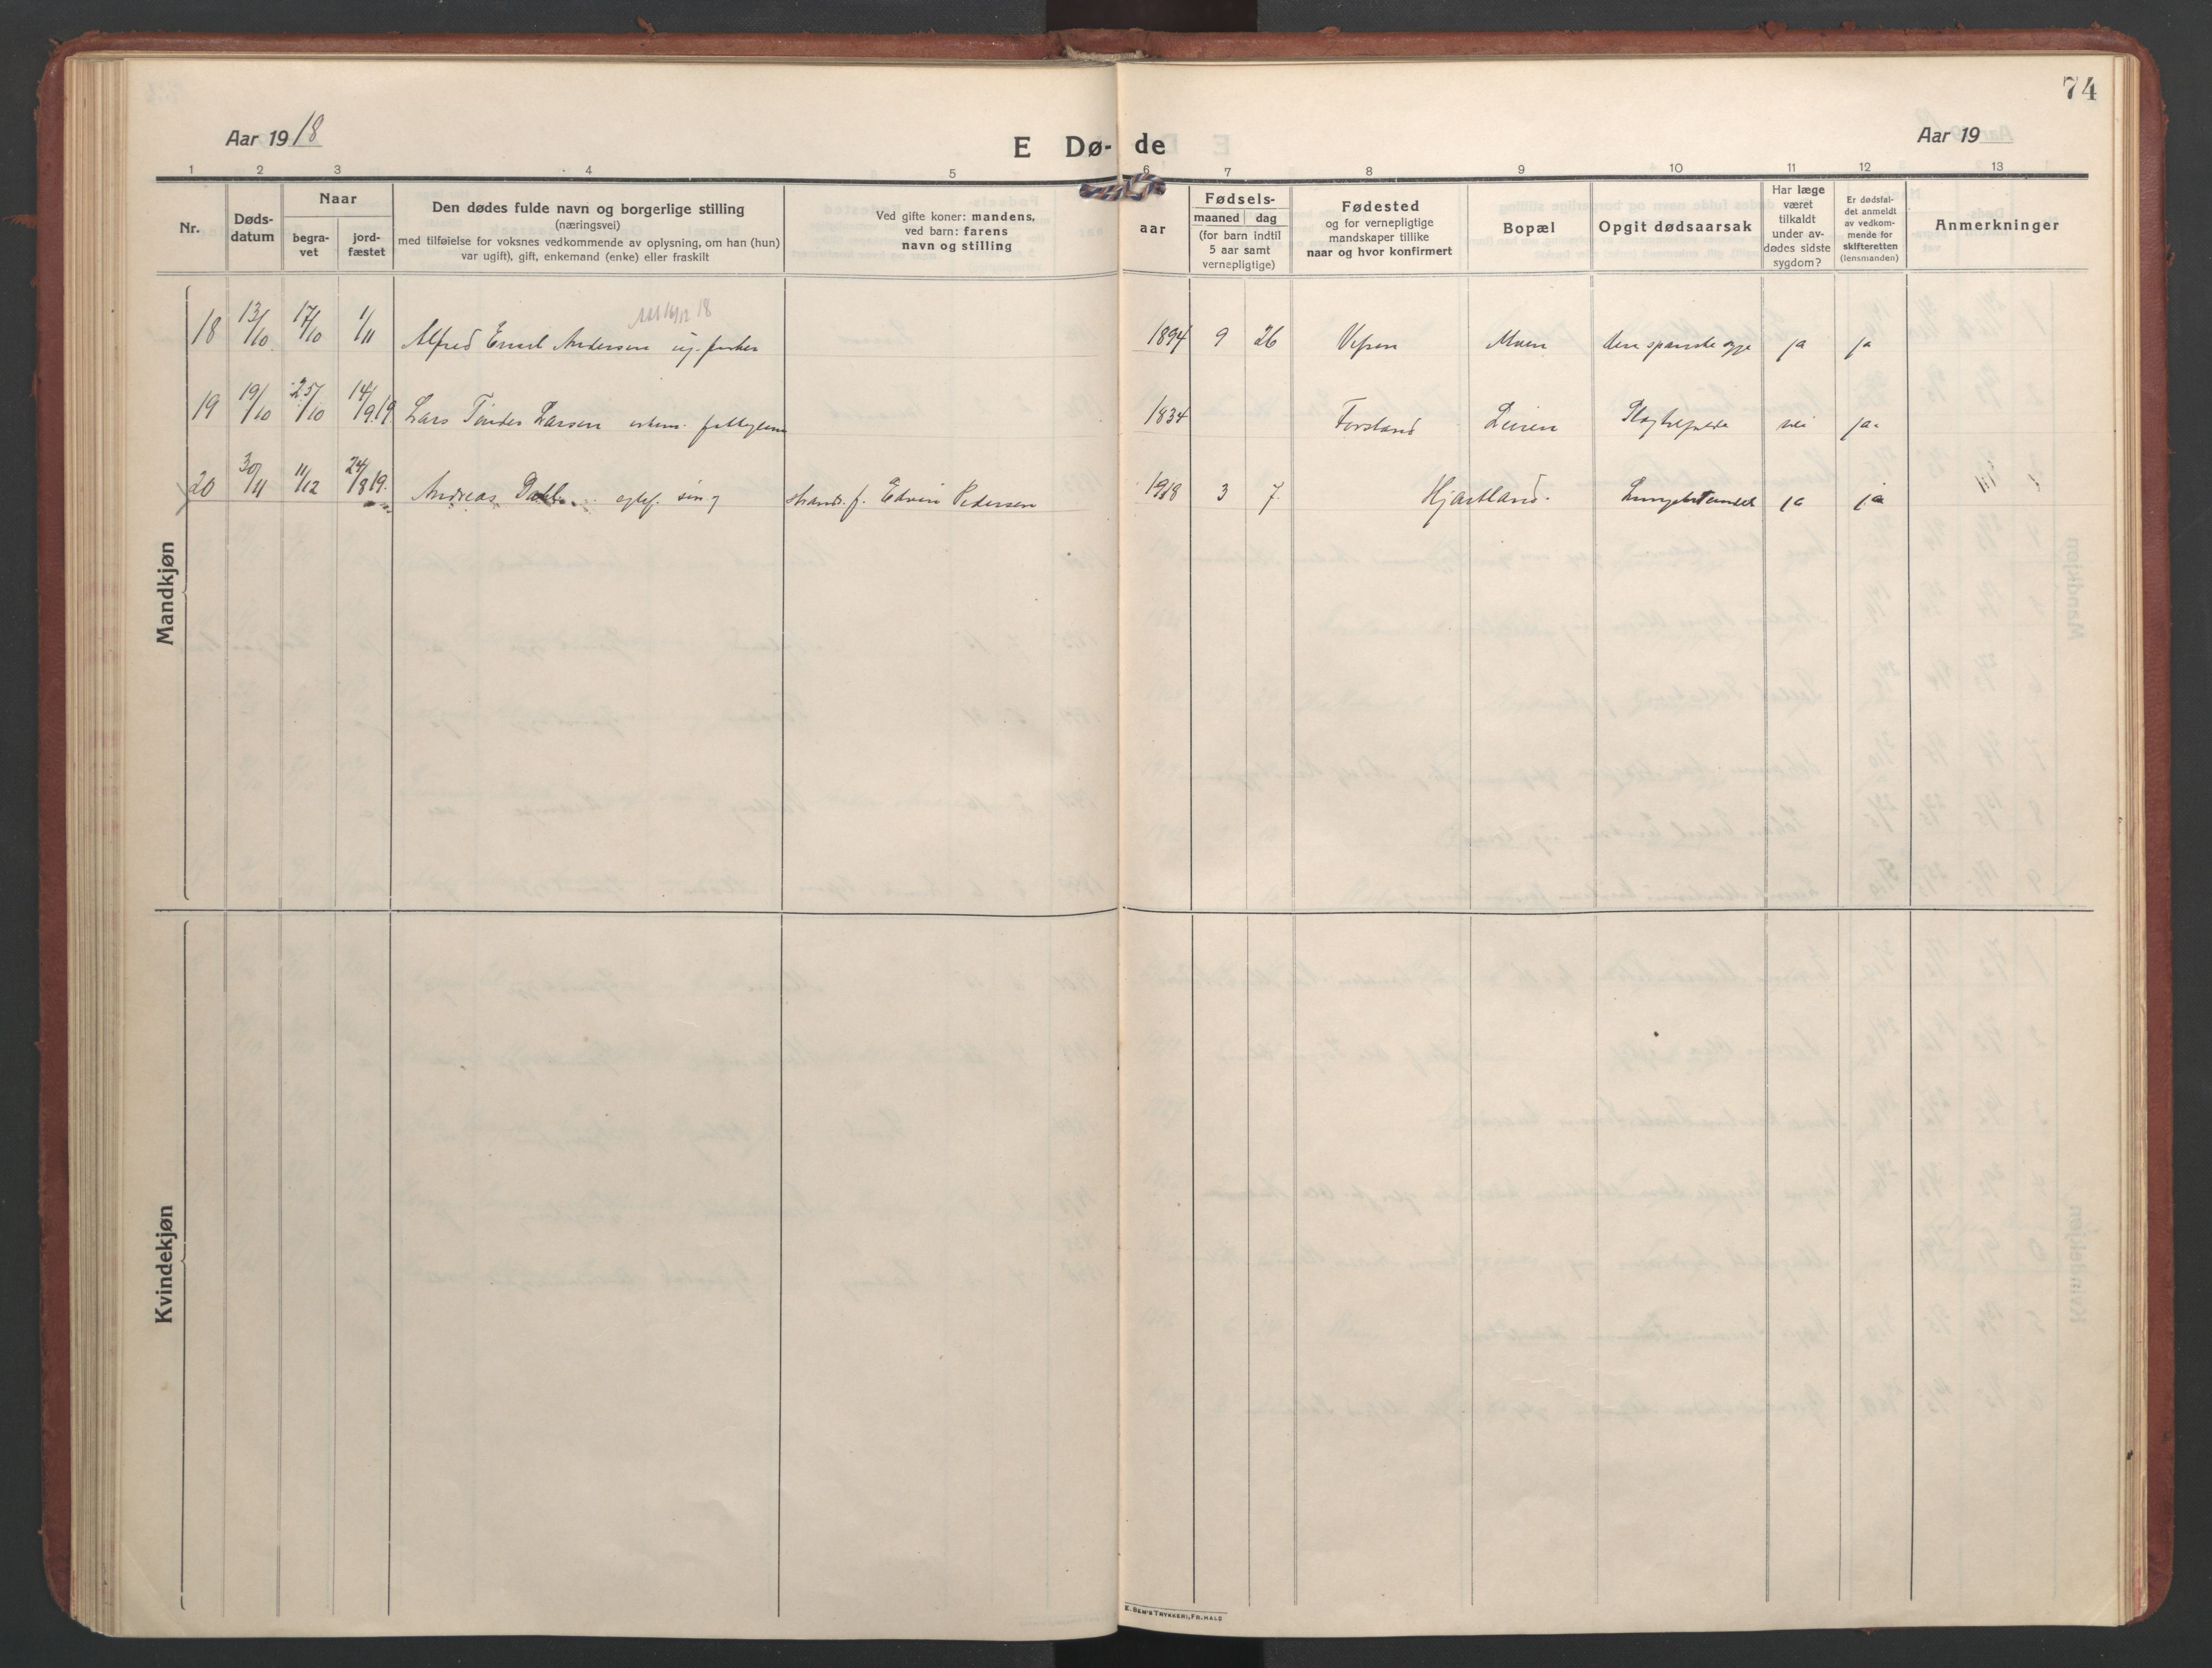 74
Aar 1918
E Dø-de
Aar 19
1 2 3 4 5 6 7 8 9 10 11 12 13
Nr.
Døds-
datum
Naar
begra-
vet
jord-
fæstet
Den dødes fulde navn og borgerlige stilling
(næringsvei)
med tilføielse for voksnes vedkommende av oplysning, om han (hun)
var ugift), gift, enkemand (enke) eller fraskilt
Ved gifte koner: mandens,
ved barn: farens
navn og stilling
aar
Fødsels-
maaned dag
(for barn indtil
5 aar samt
vernepligtige)
Fødested
og for vernepligtige
mandskaper tillike
naar og hvor konfirmert
Bopæl
Opgit dødsaarsak
Har læge
været
tilkaldt
under av-
dødes sidste
sygdom?
Er dødsfal-
det anmeldt
av vedkom-
mende for
skifteretten
(lensmanden)
Anmerkninger
Mandkjøn
18 13/10 17/10 1/11 Alfred Emil Andersen ug. fisker 1894 9 26 Vefsen Moen den spanske syge ja ja
19 19/10 25/10 14/9 19 Lars Tindes Larsen enkem. 1834 Forsland Leinen nei ja
20 30/11 11/12 24/8 19. Andreas egtef. søn g strands. f. Edvin Pedersen 1918 3 7. Hjartland. ja ja
Kvindekjøn
E. SEM'S TRYKKERI, FR.HALD